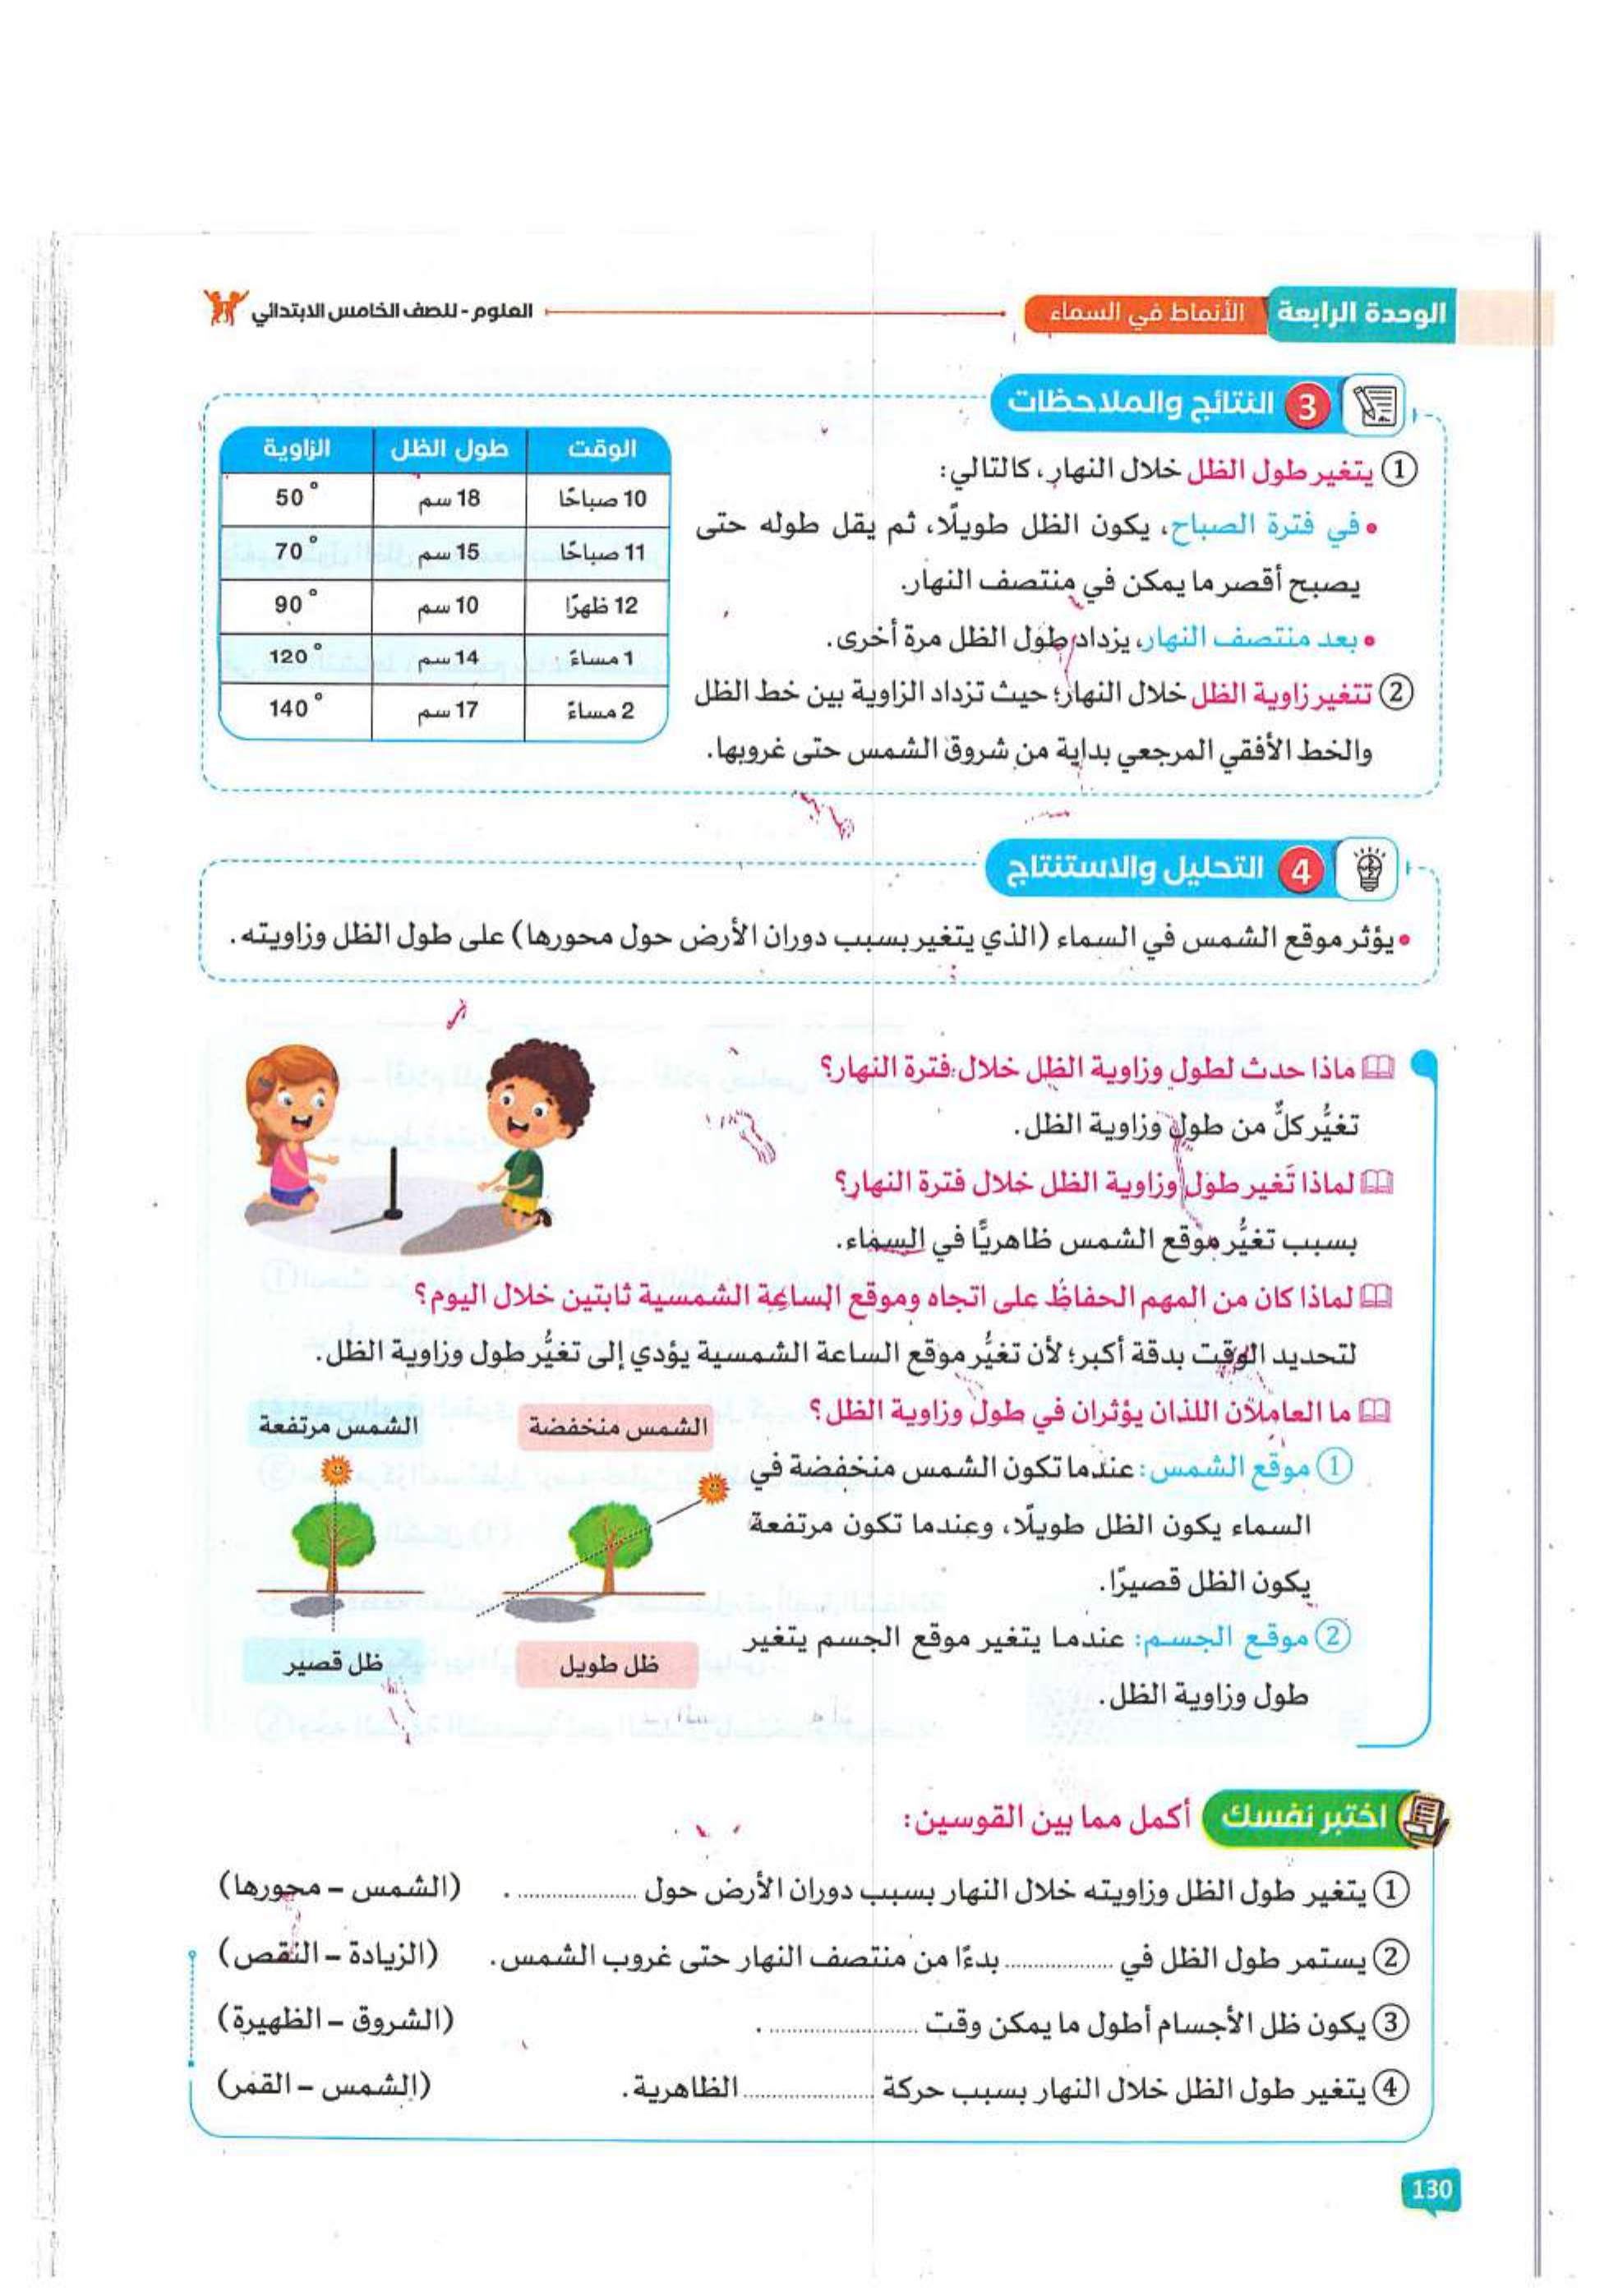 الوحدة الرابعة الأنماط في السماء
العلوم - للصف الخامس الابتدائي
3 النتائج والملاحظات
① يتغير طول الظل خلال النهار، كالتالي:
• في فترة الصباح، يكون الظل طويلًا، ثم يقل طوله حتى
يصبح أقصر ما يمكن في منتصف النهار.
• بعد منتصف النهار، يزداد طول الظل مرة أخرى.
② تتغير زاوية الظل خلال النهار؛ حيث تزداد الزاوية بين خط الظل
والخط الأفقي المرجعي بداية من شروق الشمس حتى غروبها.
الوقت طول الظل الزاوية
10 صباحًا 18 سم 50°
11 صباحًا 15 سم 70°
12 ظهرًا 10 سم 90°
1 مساءً 14 سم 120°
2 مساءً 17 سم 140°
4 التحليل والاستنتاج
• يؤثر موقع الشمس في السماء (الذي يتغير بسبب دوران الأرض حول محورها) على طول الظل وزاويته.
ماذا حدث لطول وزاوية الظل خلال فترة النهار؟
تغيُّر كلٌّ من طول وزاوية الظل.
لماذا تَغير طول وزاوية الظل خلال فترة النهار؟
بسبب تغيُّر موقع الشمس ظاهريًّا في السماء.
لماذا كان من المهم الحفاظ على اتجاه وموقع الساعة الشمسية ثابتين خلال اليوم؟
لتحديد الوقت بدقة أكبر؛ لأن تغيُّر موقع الساعة الشمسية يؤدي إلى تغيُّر طول وزاوية الظل.
ما العاملان اللذان يؤثران في طول وزاوية الظل؟
① موقع الشمس: عندما تكون الشمس منخفضة في
السماء يكون الظل طويلًا، وعندما تكون مرتفعة
يكون الظل قصيرًا.
② موقع الجسم: عندما يتغير موقع الجسم يتغير
طول وزاوية الظل.
الشمس منخفضة
الشمس مرتفعة
ظل طويل
ظل قصير
اختبر نفسك أكمل مما بين القوسين:
① يتغير طول الظل وزاويته خلال النهار بسبب دوران الأرض حول .................... . (الشمس – محورها)
② يستمر طول الظل في .................. بدءًا من منتصف النهار حتى غروب الشمس. (الزيادة – النقص)
③ يكون ظل الأجسام أطول ما يمكن وقت ......................... . (الشروق – الظهيرة)
④ يتغير طول الظل خلال النهار بسبب حركة ...................... الظاهرية. (الشمس – القمر)
130